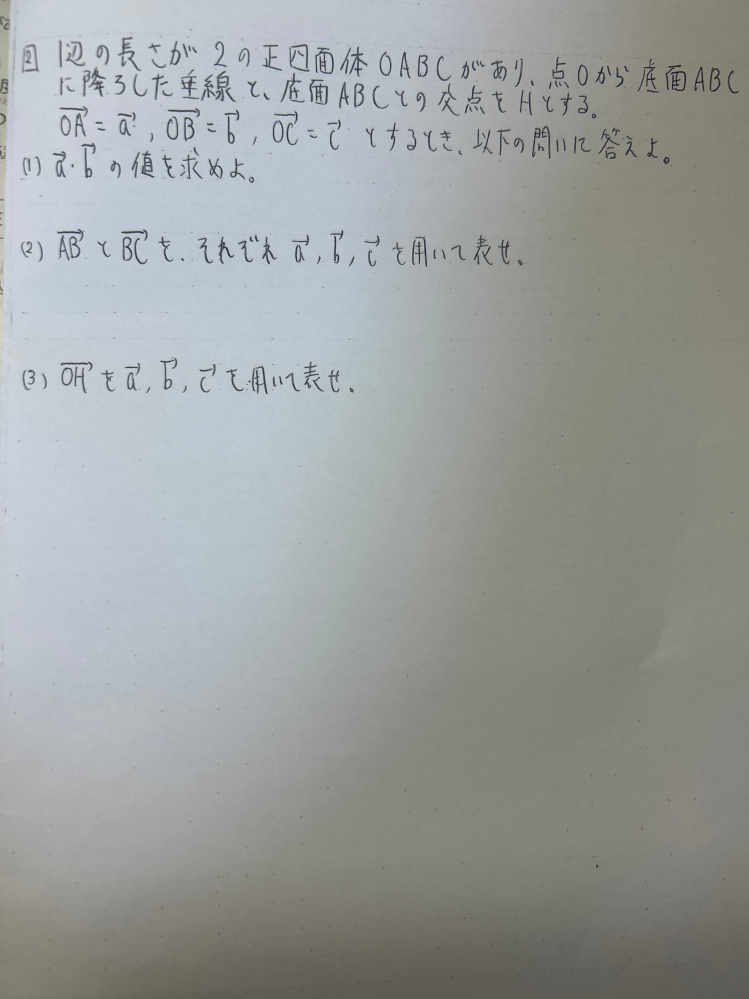 2 1辺の長さが2の正四面体OABCがあり、点Oから底面ABC
に降ろした垂線と、底面ABCとの交点をHとする。
→OA = →a, →OB = →b, →OC = →c とするとき、以下の問いに答えよ。
(1) →a・→b の値を求めよ。
(2) →AB と →BC を、それぞれ →a, →b, →c を用いて表せ。
(3) →OH を →a, →b, →c を用いて表せ。